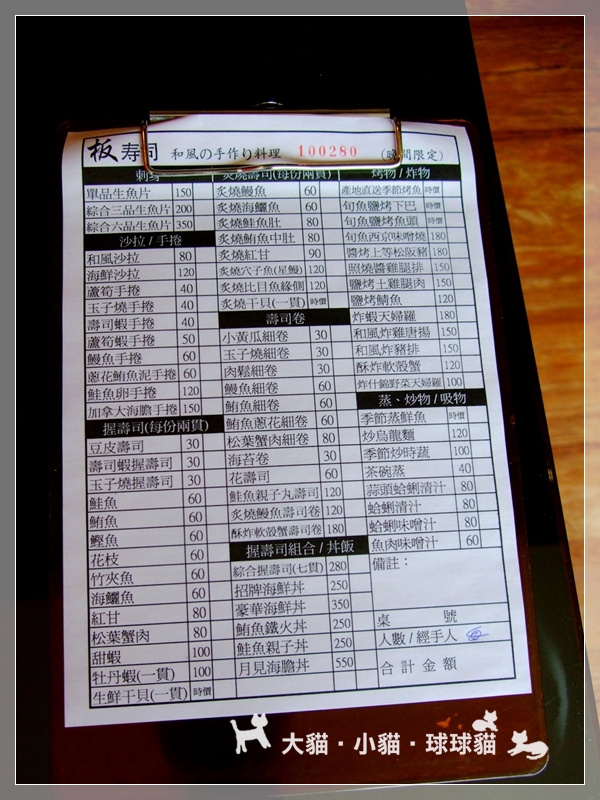 板寿司 和風の手作り料理 100280 (晚間限定)
刺身
單品生魚片 150
綜合三品生魚片 200
綜合六品生魚片 350
沙拉/手捲
和風沙拉 80
海鮮沙拉 120
蘆筍手捲 40
玉子燒手捲 40
壽司蝦手捲 40
蘆筍蝦手捲 50
鰻魚手捲 60
蔥花鮪魚泥手捲 60
鮭魚卵手捲 120
加拿大海膽手捲 150
握壽司(每份兩貫)
豆皮壽司 30
壽司蝦握壽司 30
玉子燒握壽司 30
鮭魚 60
鮪魚 60
鰹魚 60
花枝 60
竹夾魚 60
海鱺魚 60
紅甘 80
松葉蟹肉 80
甜蝦 100
牡丹蝦(一貫) 100
生鮮干貝(一貫) 時價
炙燒壽司(每份兩貫)
炙燒鰻魚 60
炙燒海鱺魚 60
炙燒鮭魚肚 80
炙燒鮪魚中肚 80
炙燒紅甘 90
炙燒穴子魚(星鰻) 120
炙燒比目魚緣側 120
炙燒干貝(一貫) 時價
壽司卷
小黃瓜細卷 30
玉子燒細卷 30
肉鬆細卷 30
鰻魚細卷 60
鮪魚細卷 60
鮪魚蔥花細卷 60
松葉蟹肉細卷 80
海苔卷 30
花壽司 30
鮭魚親子丸壽司 120
炙燒鰻魚壽司卷 120
酥炸軟殼蟹壽司卷 180
握壽司組合/丼飯
綜合握壽司(七貫) 280
招牌海鮮丼 250
豪華海鮮丼 350
鮪魚鐵火丼 250
鮭魚親子丼 250
月見海膽丼 550
烤物/炸物
產地直送季節烤魚 時價
旬魚鹽烤下巴 時價
旬魚鹽烤魚頭 時價
旬魚西京味噌燒 180
醬烤上等松阪豬 180
照燒醬雞腿排 150
鹽烤土雞腿肉 150
鹽烤鯖魚 120
炸蝦天婦羅 180
和風炸雞唐揚 150
和風炸豬排 150
酥炸軟殼蟹 120
炸什錦野菜天婦羅 100
蒸、炒物/吸物
季節蒸鮮魚 時價
炒烏龍麵 120
季節炒時蔬 100
茶碗蒸 40
蒜頭蛤蜊清汁 80
蛤蜊清汁 80
蛤蜊味噌汁 80
魚肉味噌汁 60
備註:
桌 號
人數/經手人
合計金額
大貓·小貓·球球貓